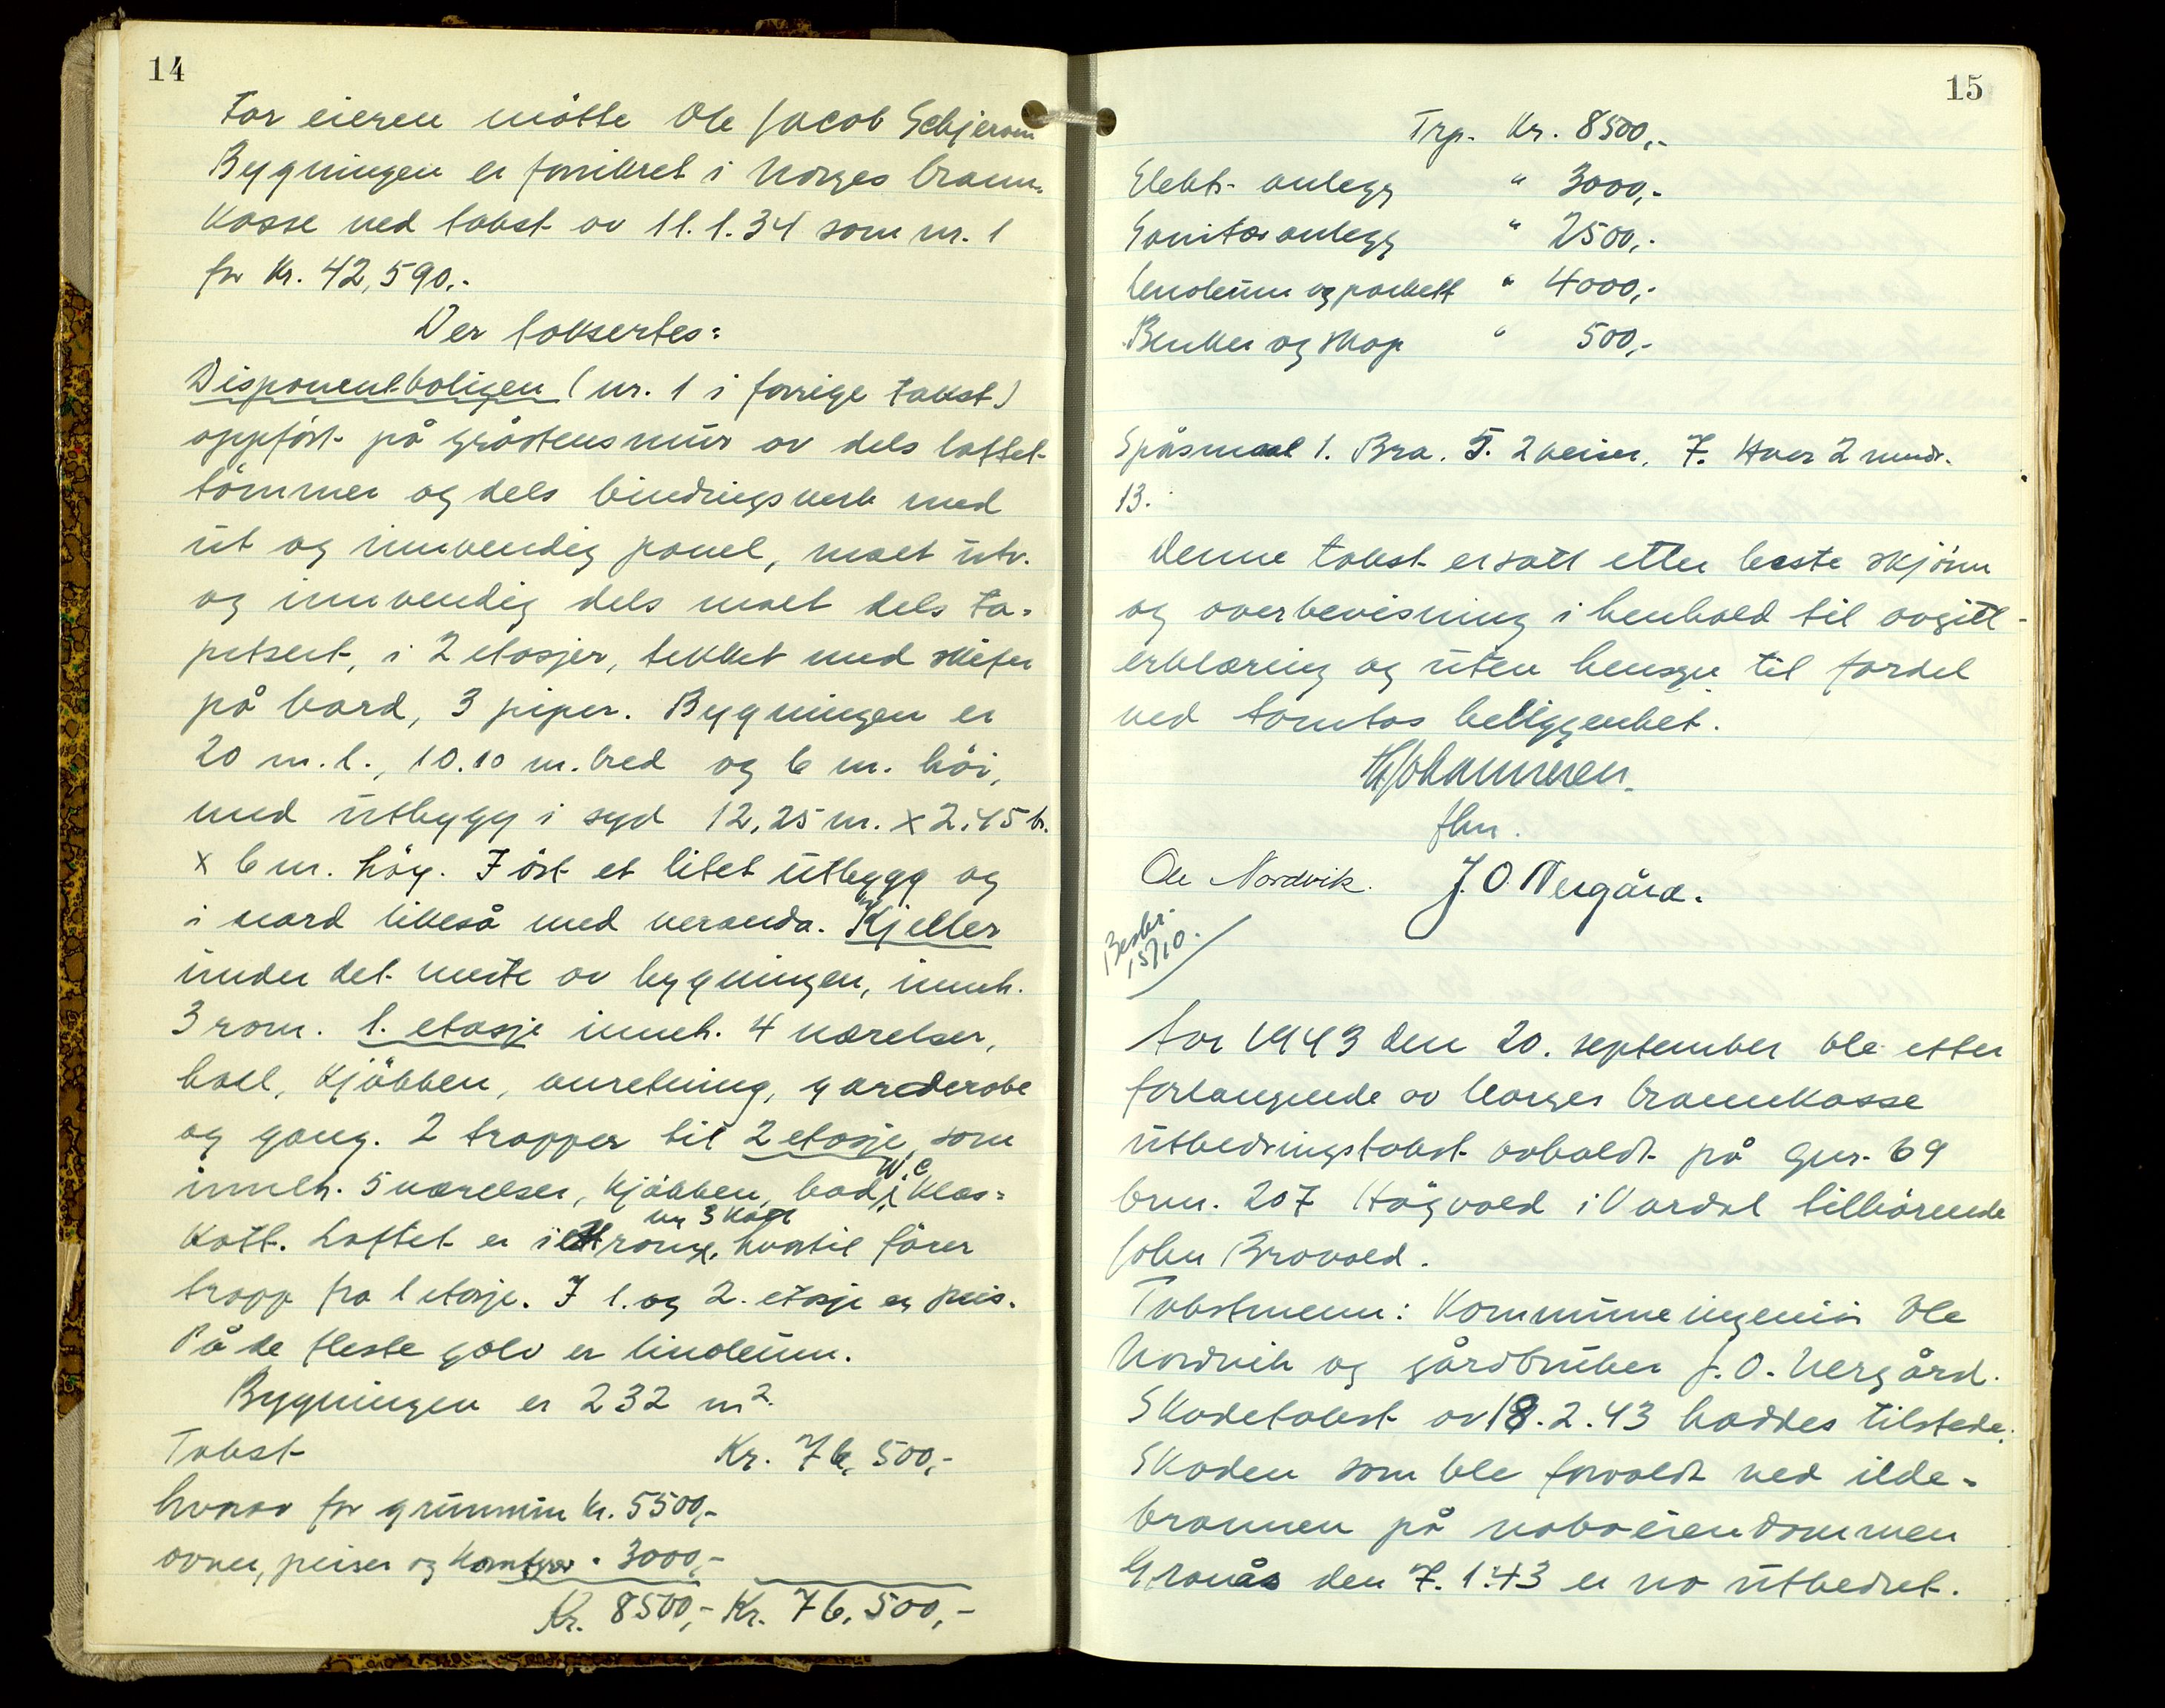 14
For eieren møtte Ole Jacob Schjerom
Bygningen er forsikret i Norges brann-
kasse ved takst av 11.1.34 som nr. 1
for Kr. 42,590.-
Der taksertes:
Disponentboligen (nr. 1 i forrige takst)
oppført på gråstensmur av dels laftet
tømmer og dels bindingsverk med
ut og innvendig panel, malt utv.
og innvendig dels malt dels ta-
petsert, i 2 etasjer, tekket med skifer
på bord, 3 piper. Bygningen er
20 m. l., 10.10 m. bred og 6 m. høi,
med utbygg i syd 12,25 m. x 2.45 b.
x 6 m. høy. I øst et litet utbygg og
i nord likeså med veranda. Kjeller
under det meste av bygningen, inneh.
3 rom. 1. etasje inneh. 4 værelser,
hall, kjøkken, anretning, garderobe
og gang. 2 trapper til 2 etasje, som
inneh. 5 værelser, kjøkken, bad, WC, klos-
kott. Loftet er i ett rom, m 3 kott hvortil fører
trapp fra 1 etasje. I 1. og 2. etasje er peis.
På de fleste golv er linoleum.
Bygningen er 232 m2.
Takst Kr. 76,500,-
hvorav for grunnmur kr. 5500,-
ovner, peiser og komfyrer " 3000,-
Kr. 8500,- Kr. 76,500,-
15
Trp. Kr. 8500,-
Elektr. anlegg " 3000,-
Sanitæranlegg " 2500,-
Lenoleum og parkett " 4000,-
Benker og skap " 500,-
Spåsmaal 1. Bra. 5. 2 veier. 7. Hver 2 mndr.
13.
Denne takst er satt etter beste skjønn
og overbevisning i henhold til avgitt
erklæring og uten hensyn til fordel
ved tomtas beliggenhet.
Johannesen
fhn.
Ole Nordvik. J. O. Nergård.
Beskr.
15/10.
Aar 1943 den 20. september ble etter
forlangende av Norges brannkasse
utbedringstakst avholdt på gnr. 69
brn. 207 Høgvold i Vardal tilhørende
John Bråvold.
Takstmenn: Kommuneingeniør Ole
Nordvik og gårdbruker J. O. Nergård.
Skadetakst av 18.2.43 haddes tilstede.
Skaden som ble forvoldt ved ilde-
brannen på naboeiendommen
Granås den 7. 1.43 er no utbedret.